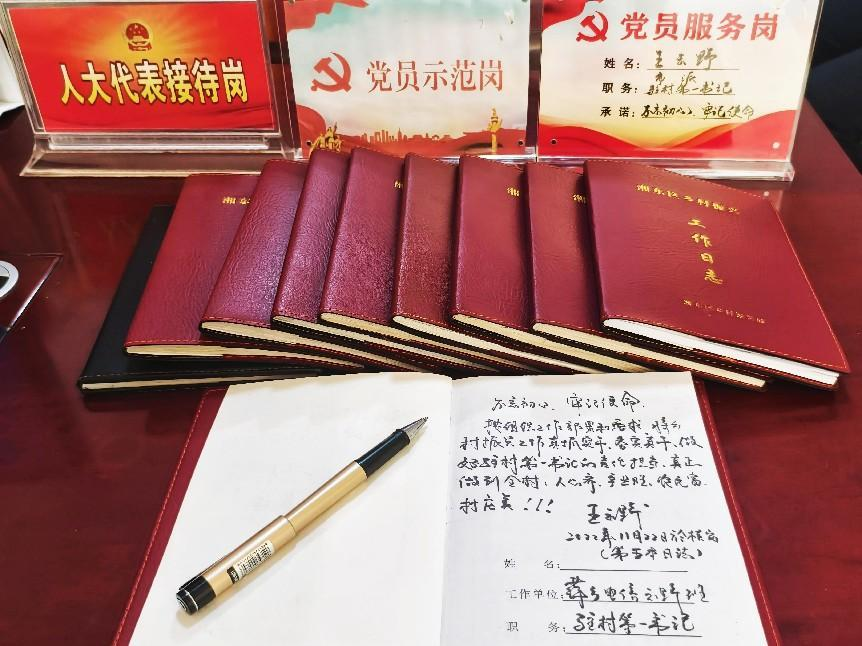 人大代表接待岗
党员示范岗
党员服务岗
姓名：王云野
市派
职务：驻村第一书记
承诺：不忘初心、牢记使命
湘东区乡村振兴
工作日志
湘
湘
不忘初心、牢记使命
按组织工作部署和要求
村振兴工作真抓实干
好驻村第一书记的责任担当，真正
做到全村：人心齐、
村庄美！！！
王云野
2022年11月22日
姓 名：
工作单位：云野班
职 务：驻村第一书记